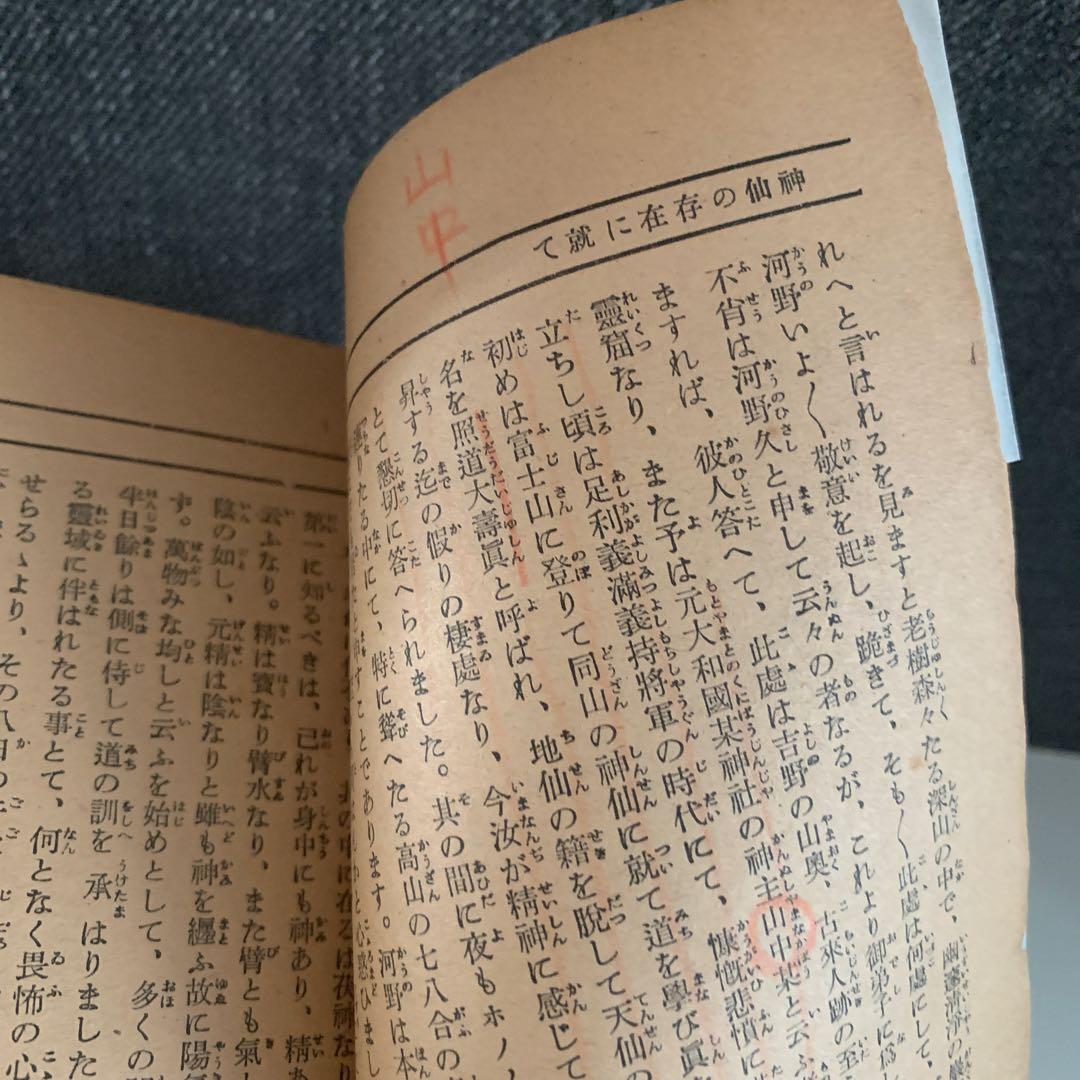 山中
神仙の存在に就て
れへと言はれるを見ますと老樹森々たる深山の中で、幽邃清淨の
河野いよ〱敬意を起し、跪きて、そも〱此處は何處にして、
不肖は河野久と申して云々の者なるが、これより御弟子に
ますれば、彼人答へて、此處は吉野の山奥、古來人跡の至
靈窟なり、また予は元大和國某神社の神主山中某と云ふ
立ちし頃は足利義滿義持將軍の時代にて、慷慨悲憤に
初めは富士山に登りて同山の神仙に就て道を學び眞
名を照道大壽眞と呼ばれ、地仙の籍を脱して天仙の
昇する迄の假りの棲處なり、今汝が精神に感じて
とて懇切に答へられました。其の間に夜もホノ
りたる中にて、特に聳へたる高山の七八合の
ことであります。河野は本
第一に知るべきは、己れが身中にも神あり、精あ
云ふなり。精は寶なり臂水なり、また臂とも氣
陰の如し、元精は陰なりと雖も神を纒ふ故に陽
す。萬物みな均しと云ふを始めとして、多くの
半日餘りは側に侍して道の訓を承はりました
る靈域に伴はれたる事とて、何となく畏怖の心
せらるゝより、その